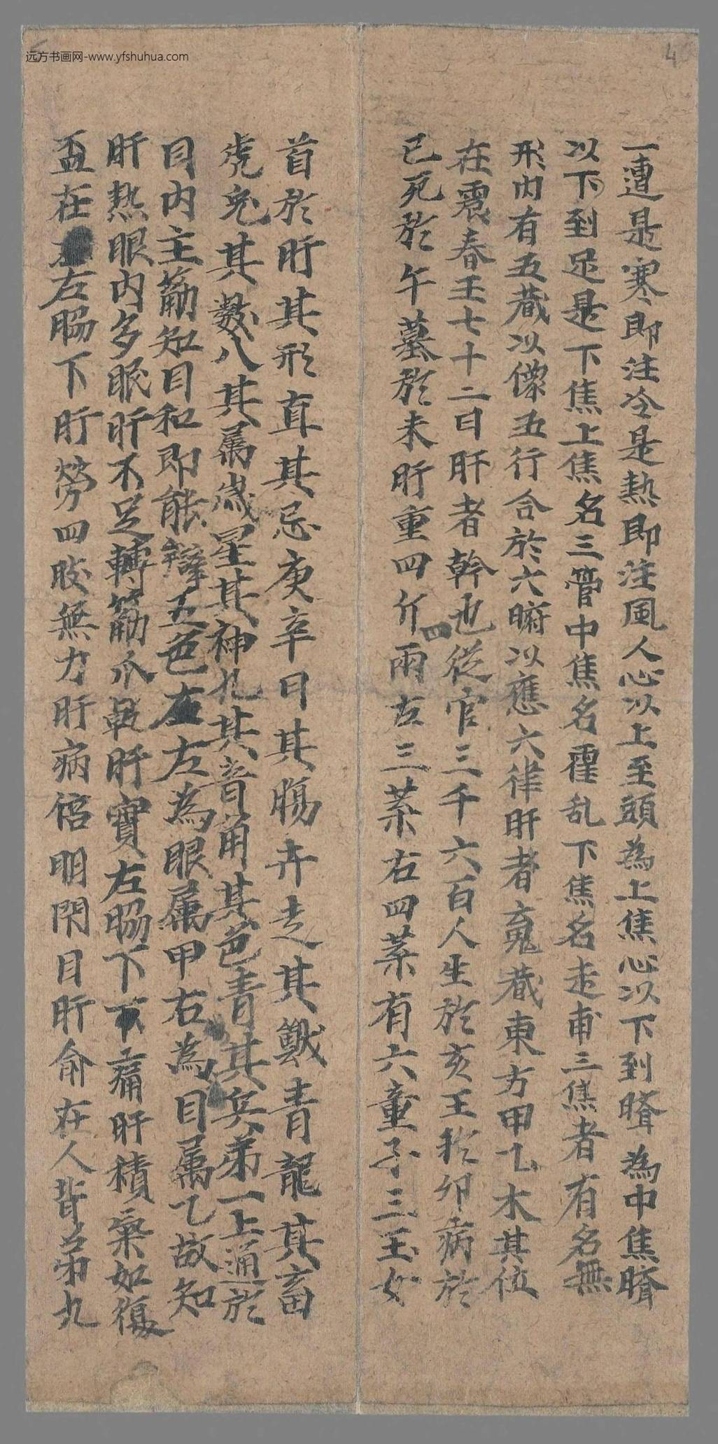 远方书画网-www.yfshuhua.com
4
一遭是寒即注冷是熱即注風人心以上至頭為上焦心以下到臍為中焦臍
以下到足是下焦上焦名三管中焦名霍乱下焦名走甫三焦者有名無
形内有五蔵以像五行合於六腑以應六律肝者䰟蔵東方甲乙木其位
在震春王七十二日肝者幹也從官三千六百人生於亥王於卯病於
巳死於午墓於未肝重四斤四兩左三葉右四葉有六童子三玉女
首於肝其形直其忌庚辛日其腸卉走其獸青龍其畜
虎兔其數八其属歲星其神九其音角其色青其兵弟一上通於
目内主筋知目和即能辯五色左為眼属甲右為目属乙故知
肝熱眼内多眠肝不足轉筋爪乾肝實左脇下痛肝積氣如覆
盃在左脇下肝勞四肢無力肝病倍明閇目肝俞在人背弟九